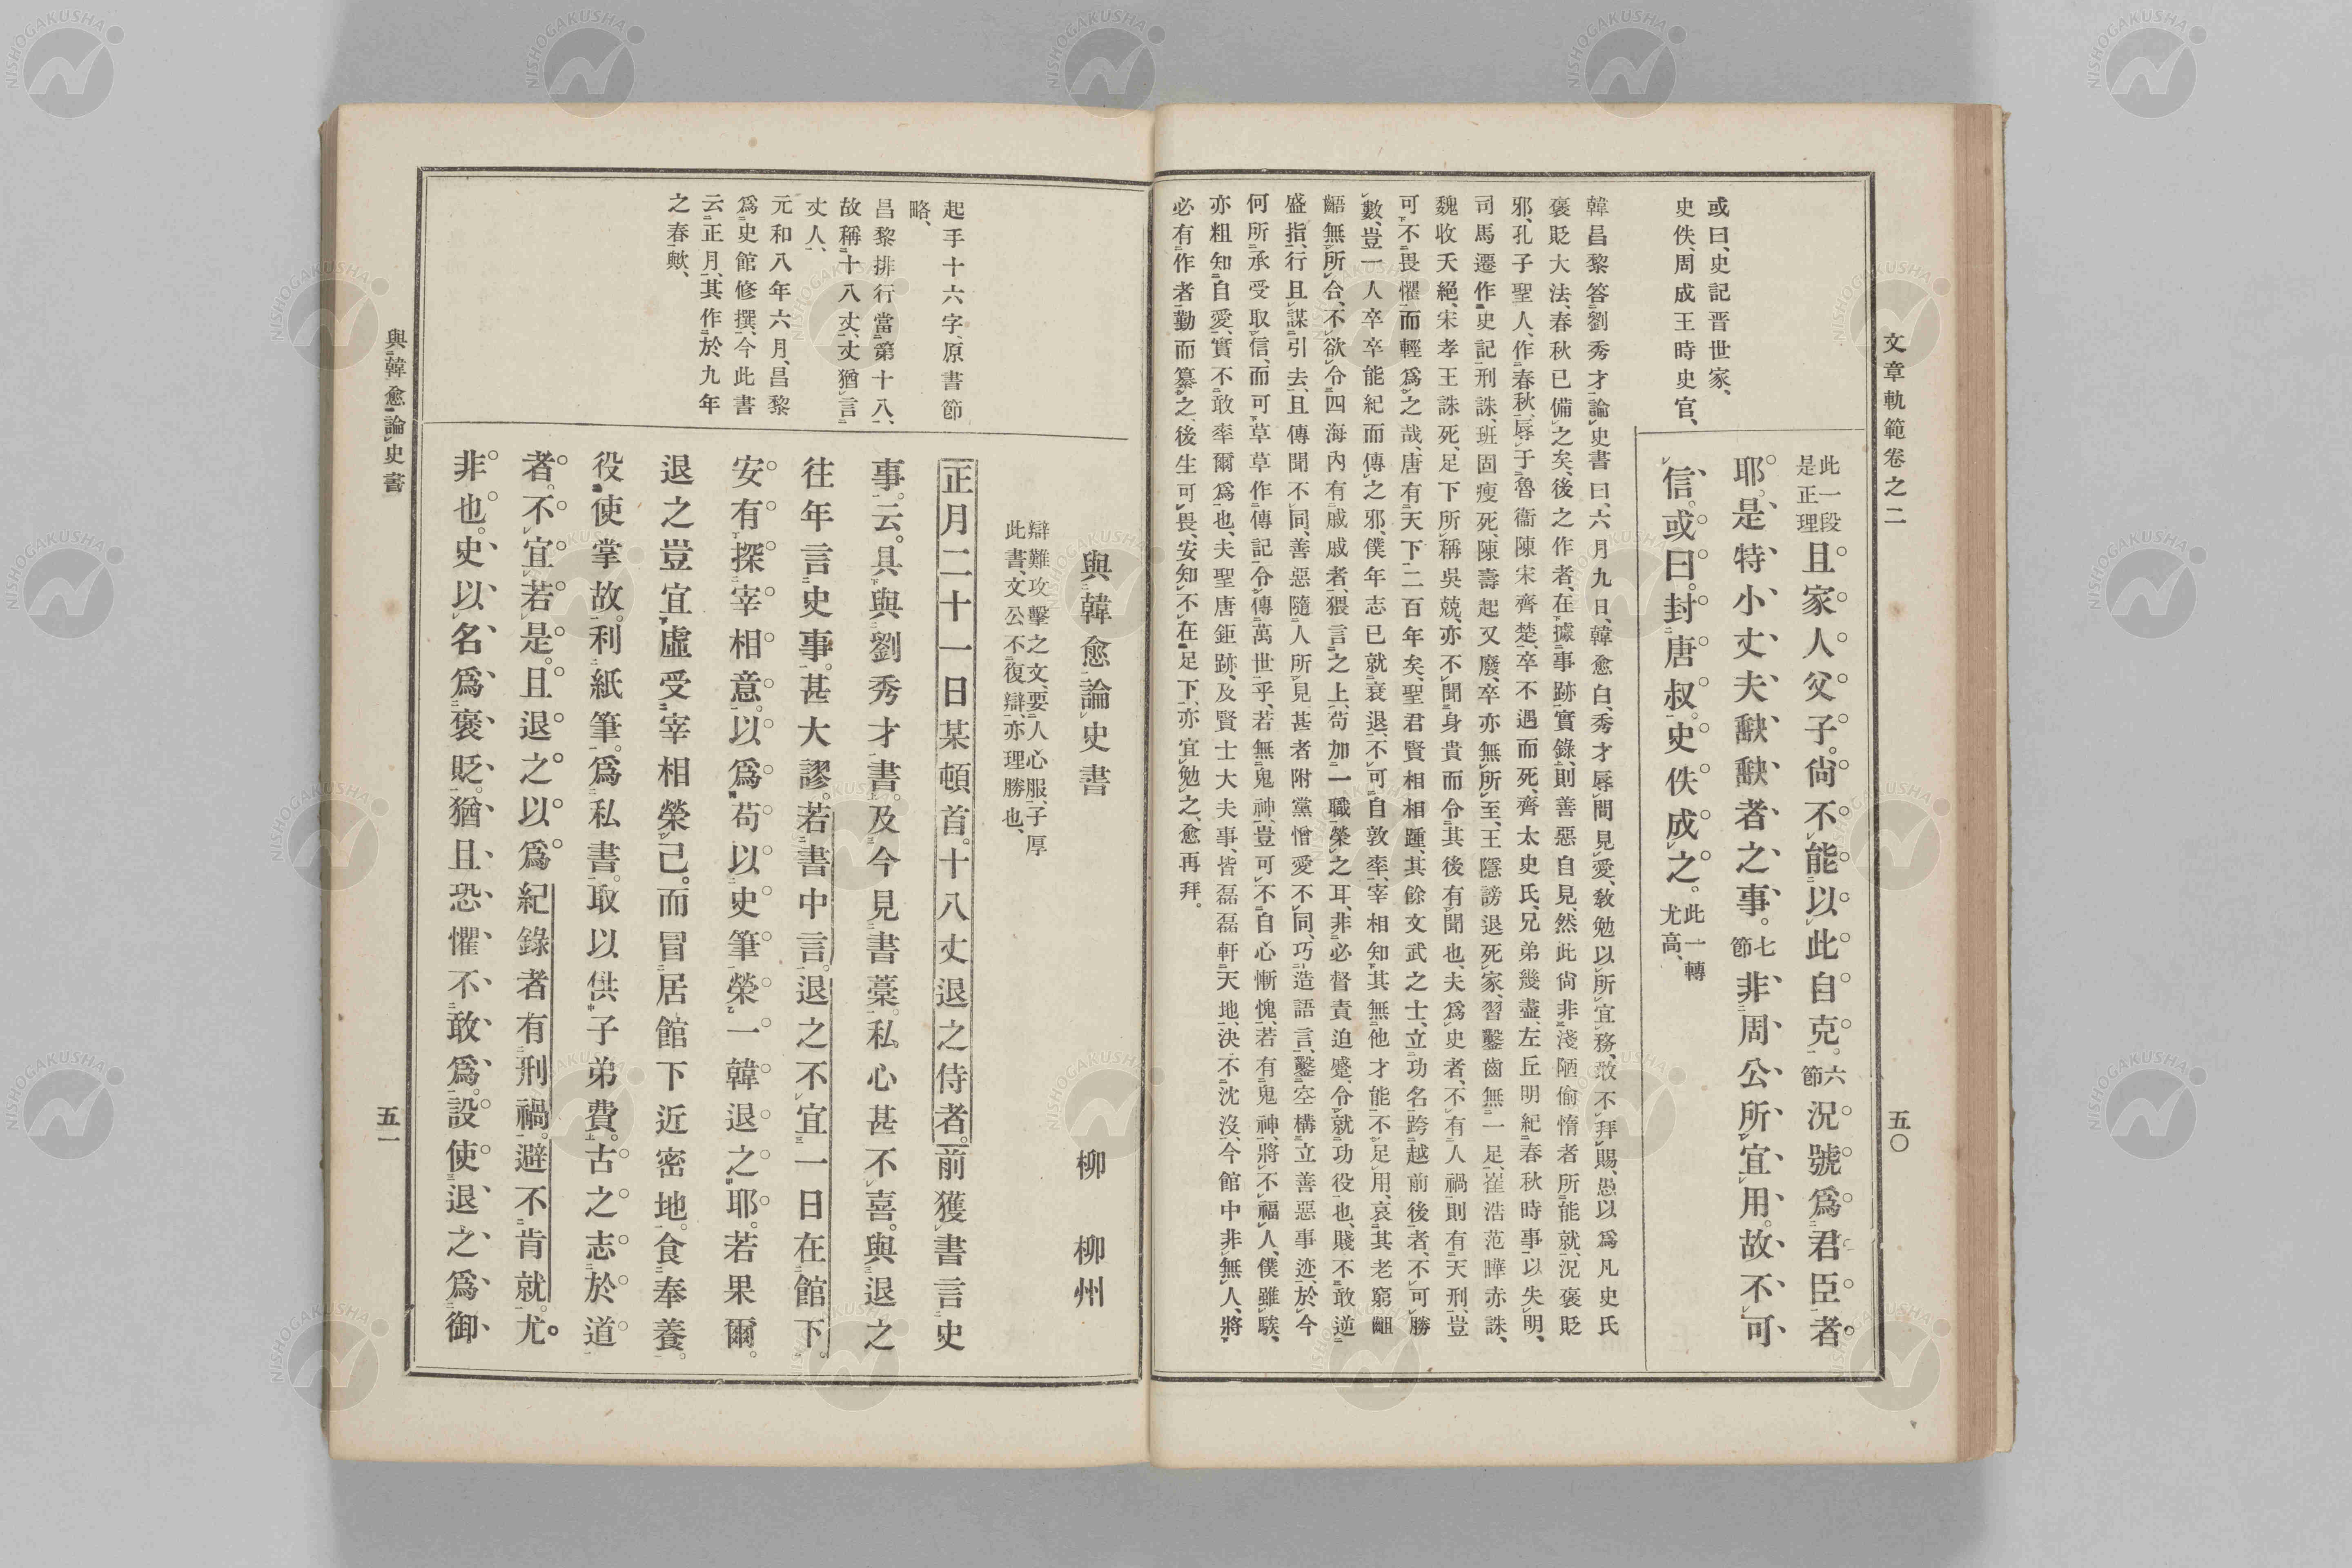 文章軌範卷之二
五〇
或曰、史記晋世家、
史佚、周成王時史官、
此一段
是正理
且家人父子。尙不能以此自克。六節況號爲君臣者
耶。是特小丈夫𡙇𡙇者之事。七節非周公所宜用。故不可
信。或曰。封唐叔。史佚成之。此一轉尤高、
韓昌黎答劉秀才論史書曰、六月九日、韓愈白、秀才辱問見愛、敎勉以所宜務、敢不拜賜、愚以爲凡史氏
褒貶大法、春秋已備之矣、後之作者、在據事跡實錄、則善惡自見、然此尙非淺陋偷惰者所能就、況褒貶
邪、孔子聖人、作春秋、辱于魯衞陳宋齊楚、卒不遇而死、齊太史氏、兄弟幾盡、左丘明紀春秋時事以失明、
司馬遷作史記刑誅、班固瘦死、陳壽起又廢、卒亦無所至、王隱謗退死家、習鑿齒無一足、崔浩范曄赤誅、
魏收夭絕、宋孝王誅死、足下所稱吳兢、亦不聞身貴而令其後有聞也、夫爲史者、不有人禍則有天刑、豈
可不畏懼而輕爲之哉、唐有天下二百年矣、聖君賢相相踵、其餘文武之士、立功名跨越前後者、不可勝
數、豈一人卒卒能紀而傳之邪、僕年志已就衰退、不可自敦率、宰相知其無他才能不足用、哀其老窮齟
齬無所合、不欲令四海內有戚戚者、猥言之上、苟加一職榮之耳、非必督責迫蹙、令就功役也、賤不敢逆
盛指、行且謀引去、且傳聞不同、善惡隨人所見、甚者附黨憎愛不同、巧造語言、鑿空構立善惡事迹、於今
何所承受取信、而可草草作傳記、令傳萬世乎、若無鬼神、豈可不自心慚愧、若有鬼神、將不福人、僕雖騃、
亦粗知自愛、實不敢率爾爲也、夫聖唐鉅跡、及賢士大夫事、皆磊磊軒天地、決不沈沒、今館中非無人、將
必有作者勤而纂之、後生可畏、安知不在足下、亦宜勉之、愈再拜。
起手十六字、原書節
略、
昌黎排行當第十八、
故稱十八丈、丈猶言
丈人、
元和八年六月、昌黎
爲史館修撰、今此書
云正月、其作於九年
之春歟、
與韓愈論史書　柳柳州
辯難攻擊之文、要人心服、子厚
此書、文公不復辯、亦理勝也、
正月二十一日某頓首。十八丈退之侍者。前獲書言史
事。云。具與劉秀才書。及今見書藁。私心甚不喜。與退之
往年言史事。甚大謬。若書中言。退之不宜一日在館下。
安有探宰相意。以爲苟以史筆榮一韓退之耶。若果爾。
退之豈宜虛受宰相榮己。而冒居館下近密地。食奉養。
役使掌故。利紙筆。爲私書。取以供子弟費。古之志於道
者。不宜若是。且退之以爲紀錄者有刑禍。避不肯就。尤
非也。史以名爲褒貶。猶且恐懼不敢爲。設使退之爲御
與韓愈論史書
五一